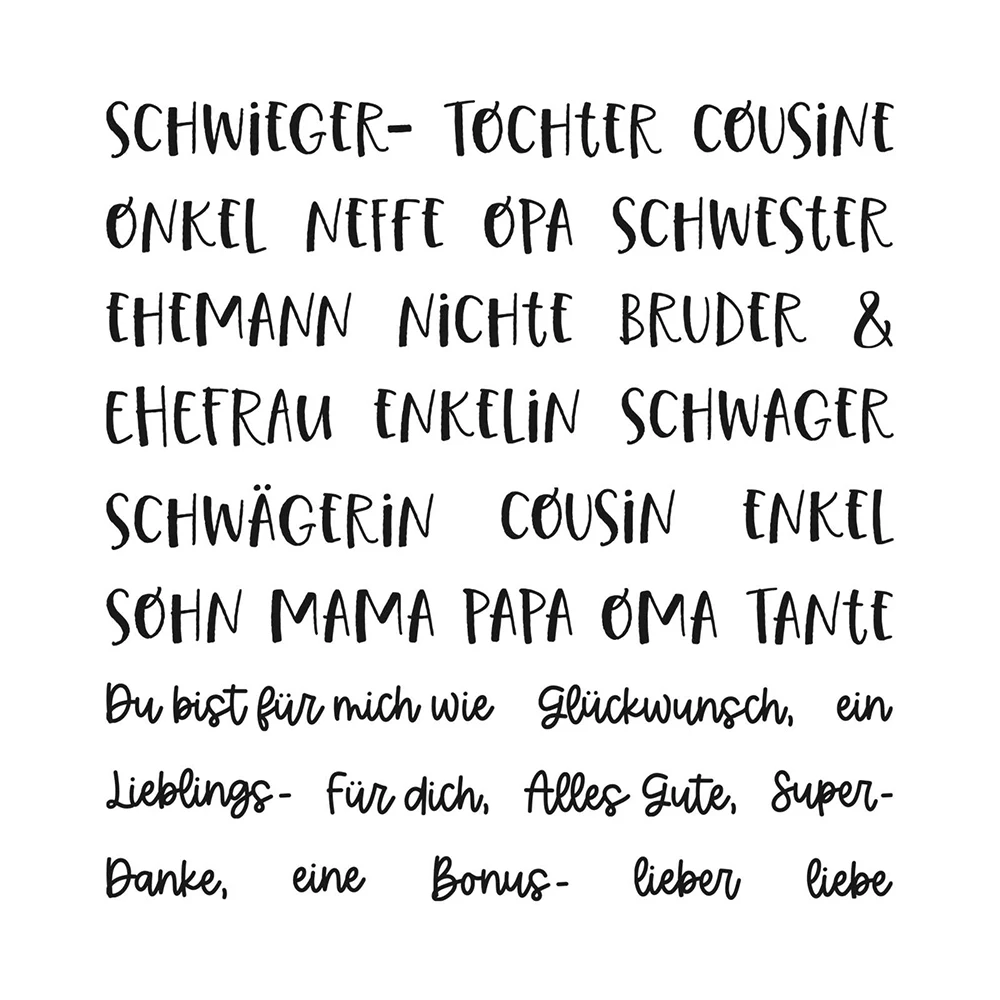 SCHWiEGER- TOCHtER COUSiNE
ONKEL NEFFE OPA SCHWEStER
EHEMANN NiCHtE BRUDER &
EHEFRAU ENKELiN SCHWAGER
SCHWÄGERiN COUSiN ENKEL
SOHN MAMA PAPA OMA TANtE
Du bist für mich wie Glückwunsch, ein
Lieblings- Für dich, Alles Gute, Super-
Danke, eine Bonus- lieber liebe